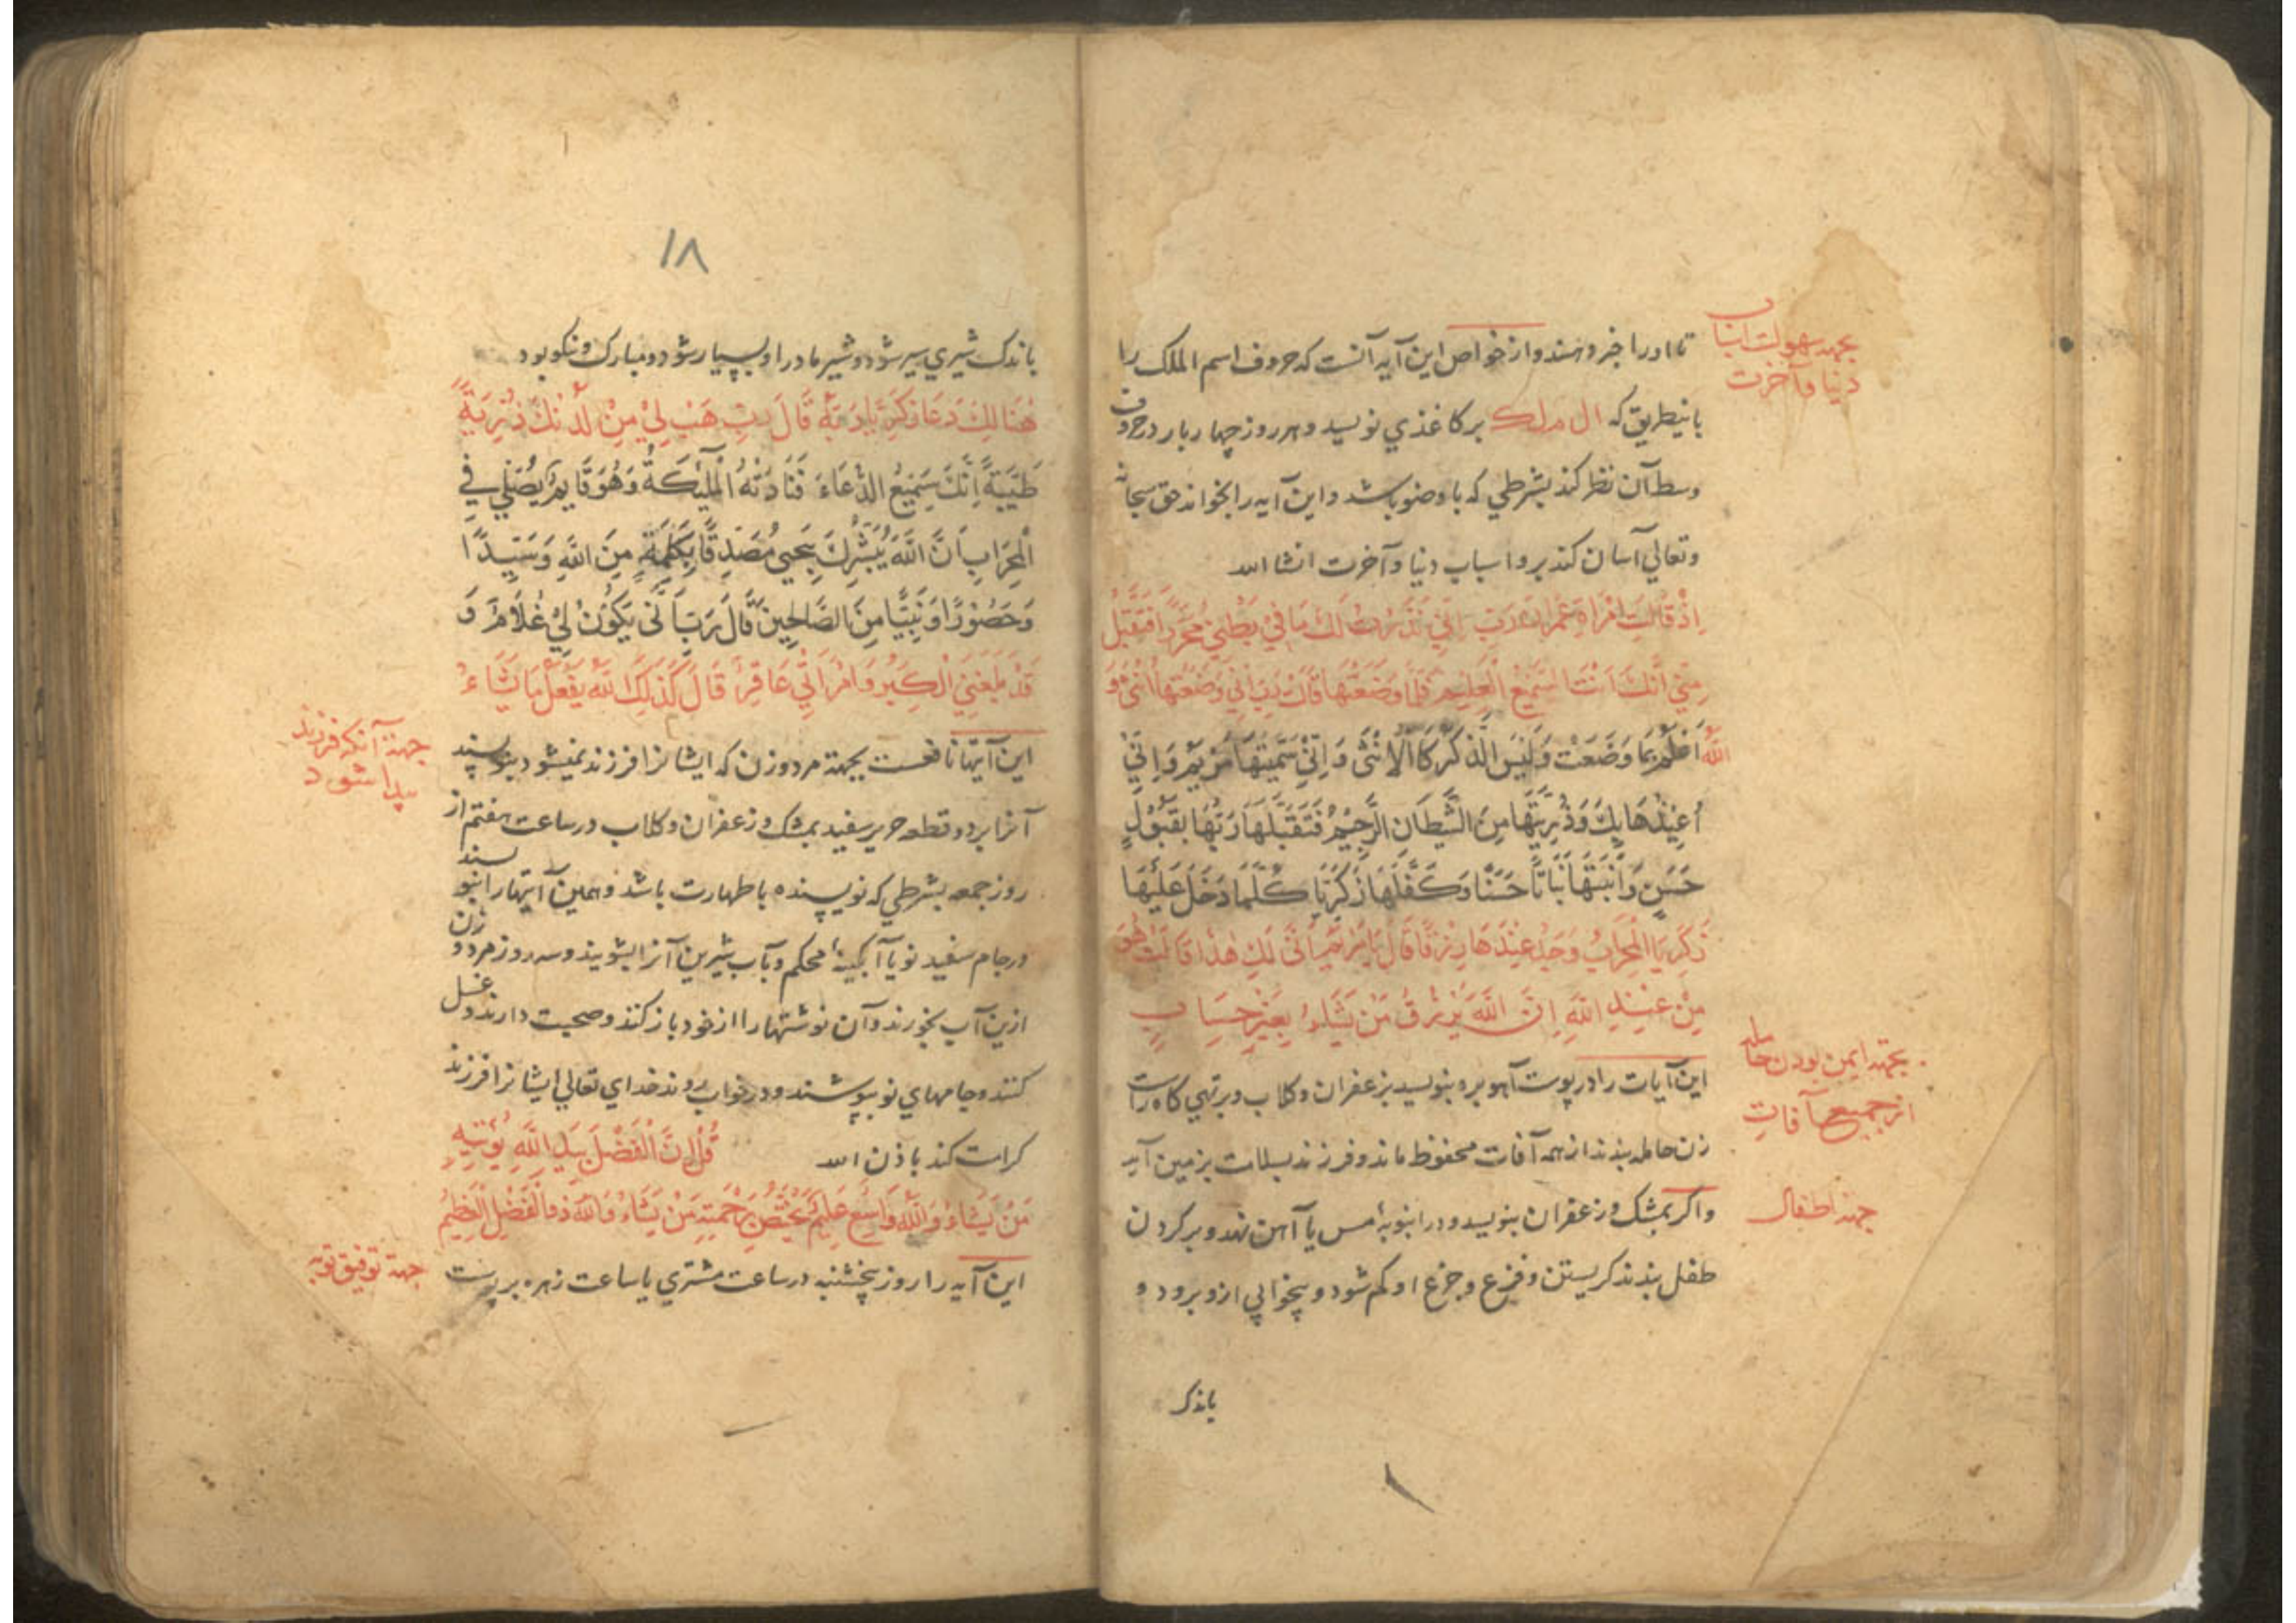 بجهة سهولت اسباب
دنیا و آخرت
تا او را خبر دهند و از خواص این آیه آنست که حروف اسم الملک را
باینطریق که ال م ل ک بر کاغذی نویسد و هر روز چهار بار در حروف
وسط آن نظر کند بشرطی که با وضو باشد و این آیه را بخواند حق سبحانه
وتعالی آسان کند برو اسباب دنیا و آخرت انشا الله
اِذْ قَالَتِ امْرَاَةُ عِمْرَانَ رَبِّ اِنِّي نَذَرْتُ لَكَ مَا فِي بَطْنِي مُحَرَّرًا فَتَقَبَّلْ
مِنِّي اِنَّكَ اَنْتَ السَّمِيعُ الْعَلِيمُ فَلَمَّا وَضَعَتْهَا قَالَتْ رَبِّ اِنِّي وَضَعْتُهَا اُنْثَى وَ
اللهُ اَعْلَمُ بِمَا وَضَعَتْ وَلَيْسَ الذَّكَرُ كَالْاُنْثَى وَاِنِّي سَمَّيْتُهَا مَرْيَمَ وَاِنِّي
اُعِيذُهَا بِكَ وَذُرِّيَّتَهَا مِنَ الشَّيْطَانِ الرَّجِيمِ فَتَقَبَّلَهَا رَبُّهَا بِقَبُولٍ
حَسَنٍ وَاَنْبَتَهَا نَبَاتًا حَسَنًا وَكَفَّلَهَا زَكَرِيَّا كُلَّمَا دَخَلَ عَلَيْهَا
زَكَرِيَّا الْمِحْرَابَ وَجَدَ عِنْدَهَا رِزْقًا قَالَ يَا مَرْيَمُ اَنَّى لَكِ هٰذَا قَالَتْ هُوَ
مِنْ عِنْدِ اللهِ اِنَّ اللهَ يَرْزُقُ مَنْ يَشَاءُ بِغَيْرِ حِسَابٍ
بجهة ایمن بودن حامله
از جمیع آفات
این آیات را در پوست آهو بره بنویسد بزعفران و کلاب و بر تهی کاه راست
زن حامله بندند از همه آفات محفوظ ماند و فرزند بسلامت بزمین آید
جهة اطفال
و اکر بمشک و زعفران بنویسد و در انبوبهٔ مس یا آهن نهد و بر کردن
طفل بندند کریستن و فزع و جزع او کم شود و بیخوابی ازو برود و
باندک
١٨
باندک شیری سیر شود و شیر مادر او بسیار شود و مبارک و نکو بود
هُنَالِكَ دَعَا زَكَرِيَّا رَبَّهُ قَالَ رَبِّ هَبْ لِي مِنْ لَدُنْكَ ذُرِّيَّةً
طَيِّبَةً اِنَّكَ سَمِيعُ الدُّعَاءِ فَنَادَتْهُ الْمَلٰئِكَةُ وَهُوَ قَايِمٌ يُصَلِّي فِي
الْمِحْرَابِ اَنَّ اللهَ يُبَشِّرُكَ بِيَحْيَى مُصَدِّقًا بِكَلِمَةٍ مِنَ اللهِ وَسَيِّدًا
وَحَصُورًا وَنَبِيًّا مِنَ الصَّالِحِينَ قَالَ رَبِّ اَنَّى يَكُونُ لِي غُلَامٌ وَ
قَدْ بَلَغَنِيَ الْكِبَرُ وَامْرَاَتِي عَاقِرٌ قَالَ كَذٰلِكَ اللهُ يَفْعَلُ مَا يَشَاءُ
جهة آنکه فرزند
پیدا شود
این آیتها نافعست بجهة مرد و زن که ایشانرا فرزند نمیشود بنویسند
آنرا بر دو قطعه حریر سفید بمشک و زعفران و کلاب در ساعت هفتم از
روز جمعه بشرطی که نویسنده با طهارت باشد و همین آیتها را بنویسند
در جام سفید نو یا آبکینهٔ محکم و بآب شیرین آنرا بشویند و سه روز مرد و زن
ازین آب بخورند و آن نوشتها را از خود باز کنند و صحبت دارند و غسل
کنند و جامهای نو بپوشند و در خواب روند خدای تعالی ایشانرا فرزند
کرامت کند باذن الله قُلْ اِنَّ الْفَضْلَ بِيَدِ اللهِ يُؤْتِيهِ
مَنْ يَشَاءُ وَاللهُ وَاسِعٌ عَلِيمٌ يَخْتَصُّ بِرَحْمَتِهِ مَنْ يَشَاءُ وَاللهُ ذُو الْفَضْلِ الْعَظِيمِ
جهة توفیق توبه
این آیه را روز پنجشنبه در ساعت مشتری یا ساعت زهره بر پوست